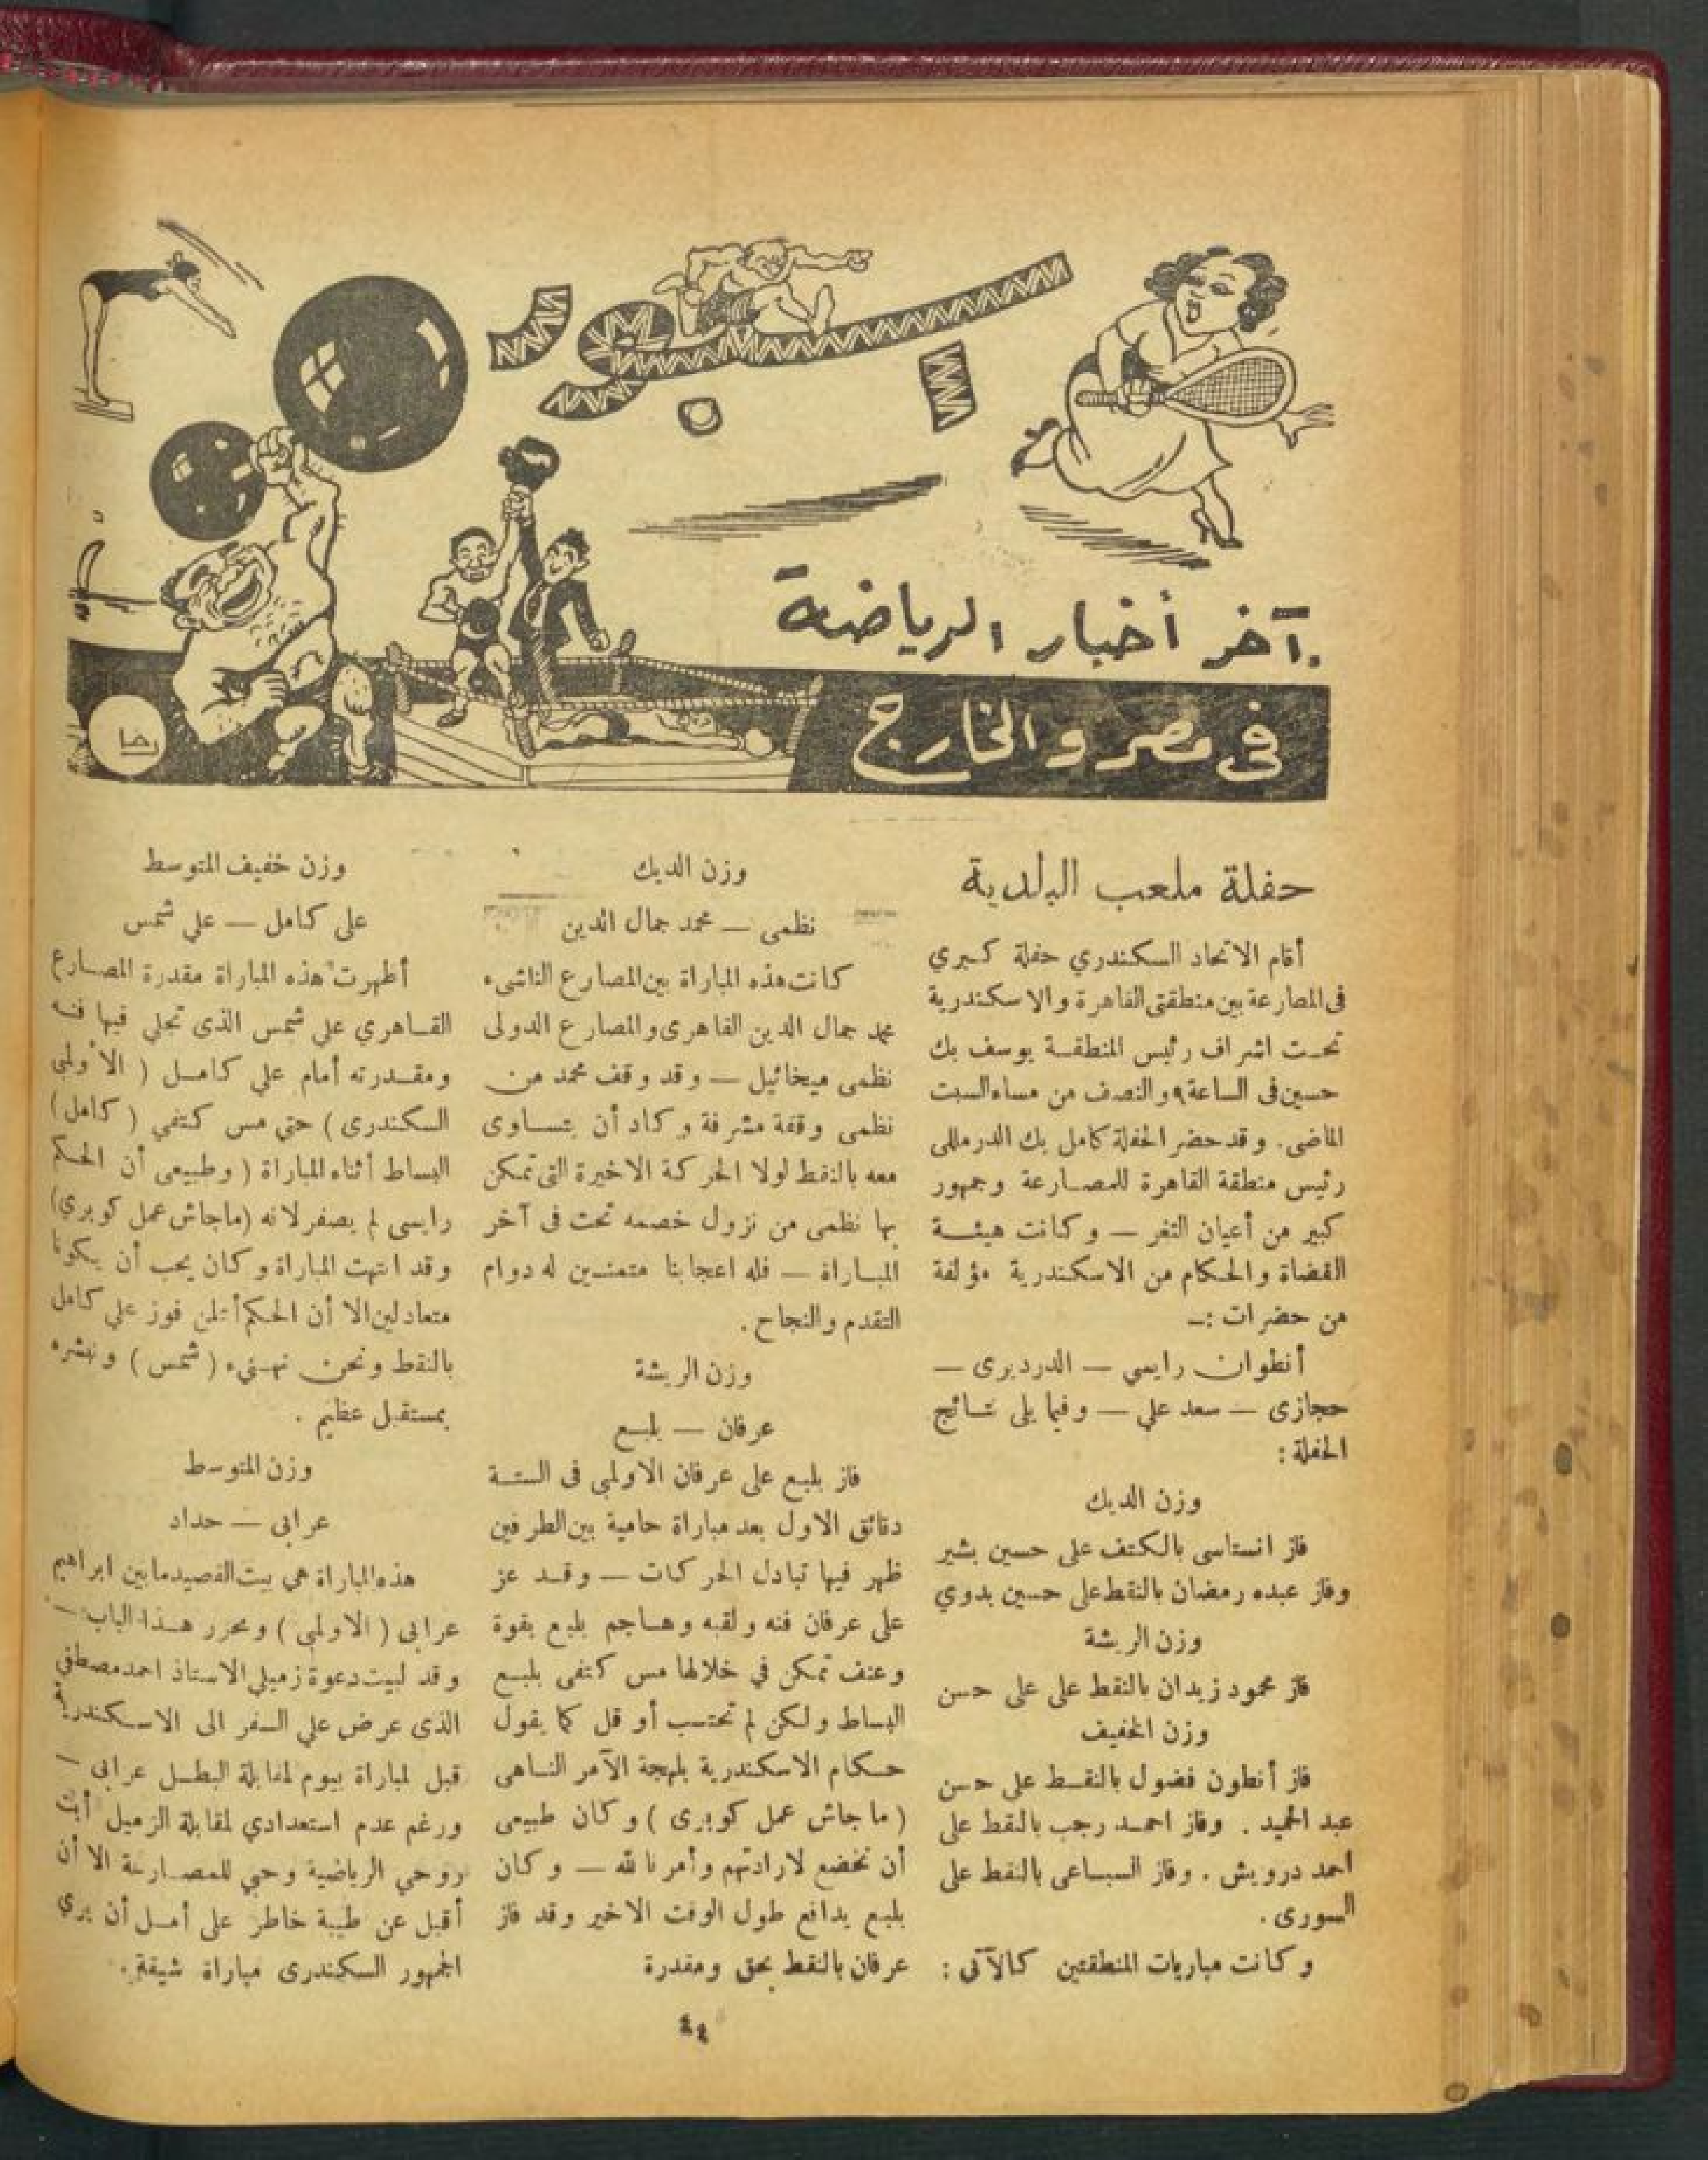 سبور
آخر أخبار الرياضة
في مصر والخارج
رخا
حفلة ملعب البلدية
أقام الاتحاد السكندري حفلة كبري
فى المصارعة بين منطقتى القاهرة والاسكندرية
تحت اشراف رئيس المنطقة يوسف بك
حسين فى الساعة ٩ والنصف من مساء السبت
الماضى . وقد حضر الحفلة كامل بك الدرمللى
رئيس منطقة القاهرة للمصارعة وجمهور
كبير من أعيان الثغر — وكانت هيئة
القضاة والحكام من الاسكندرية مؤلفة
من حضرات :—
أنطوان رايسي — الدرديرى —
حجازى — سعد علي — وفيما يلى نتائج
الحفلة :
وزن الديك
فاز انستاسى بالكتف على حسين بشير
وفاز عبده رمضان بالنقط على حسين بدوي
وزن الريشة
فاز محمود زيدان بالنقط على على حسن
وزن الخفيف
فاز أنطون فضول بالنقط على حسن
عبد الحميد . وفاز احمد رجب بالنقط على
أحمد درويش . وفاز السباعى بالنقط على
السورى .
وكانت مباريات المنطقتين كالآتى :
وزن الديك
نظمى — محمد جمال الدين
كانت هذه المباراة بين المصارع الناشىء
محمد جمال الدين القاهرى والمصارع الدولى
نظمى ميخائيل — وقد وقف محمد من
نظمى وقفة مشرفة وكاد أن يتساوى
معه بالنقط لولا الحركة الاخيرة التى تمكن
بها نظمى من نزول خصمه تحت فى آخر
المباراة — فله اعجابنا متمنين له دوام
التقدم والنجاح .
وزن الريشة
عرفان — بلبع
فاز بلبع على عرفان الاولمبى فى الستة
دقائق الاول بعد مباراة حامية بين الطرفين
ظهر فيها تبادل الحركات — وقد عز
على عرفان فنه ولقبه وهاجم بلبع بقوة
وعنف تمكن في خلالها مس كتفى بلبع
البساط ولكن لم تحتسب أو قل كما يقول
حكام الاسكندرية بلهجة الآمر الناهى
( ماجاش عمل كوبرى ) وكان طبيعى
أن نخضع لارادتهم وأمرنا لله — وكان
بلبع يدافع طول الوقت الاخير وقد فاز
عرفان بالنقط بحق ومقدرة
وزن خفيف المتوسط
على كامل — علي شمس
أظهرت هذه المباراة مقدرة المصارع
القاهري على شمس الذى تجلى فيها فنه
ومقدرته أمام علي كامل ( الأولمبى
السكندرى ) حتى مس كتفي ( كامل )
البساط أثناء المباراة ( وطبيعى أن الحكم
رايسى لم يصفر لانه (ماجاش عمل كوبري)
وقد انتهت المباراة وكان يجب أن يكونا
متعادلين الا أن الحكم أعلن فوز علي كامل
بالنقط ونحن نهنىء ( شمس ) ونبشره
بمستقبل عظيم .
وزن المتوسط
عرابى — حداد
هذه المباراة هي بيت القصيد ما بين ابراهيم
عرابى ( الاولمبى ) ومحرر هذا الباب —
وقد لبيت دعوة زميلي الاستاذ احمد مصطفى
الذى عرض علي السفر الى الاسكندرية
قبل المباراة بيوم لمقابلة البطل عرابى —
ورغم عدم استعدادي لمقابلة الزميل أبت
روحي الرياضية وحبي للمصارعة الا أن
أقبل عن طيبة خاطر على أمل أن يري
الجمهور السكندرى مباراة شيقة .